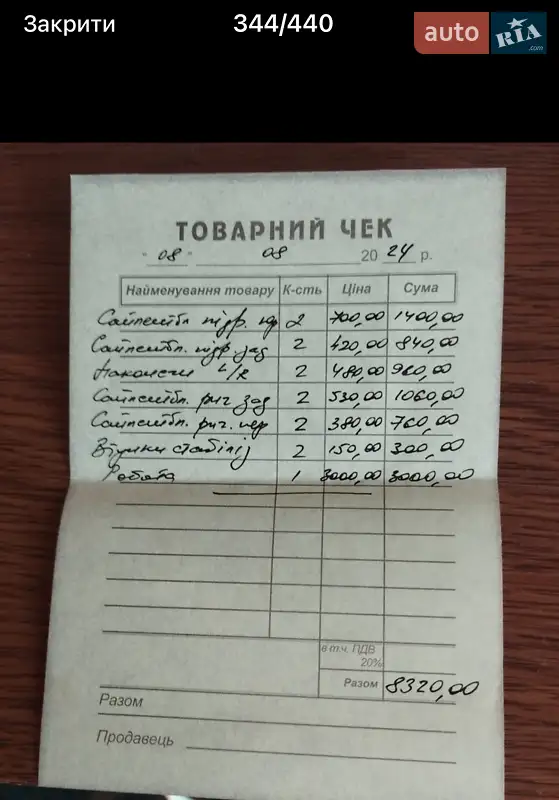 Закрити 344/440 auto RIA .com
ТОВАРНИЙ ЧЕК
"08" 08 2024 р.
Найменування товару К-сть Ціна Сума
Сайлентбл підр. пер 2 700,00 1400,00
Сайлентбл. підр. зад 2 420,00 840,00
Наконечн L/R 2 480,00 960,00
Сайлентбл. рич. зад 2 530,00 1060,00
Сайлентбл. рич. пер 2 380,00 760,00
Втулки стабіліз 2 150,00 300,00
Робота 1 3000,00 3000,00
в т.ч. ПДВ
20%
Разом 8320,00
Разом
Продавець